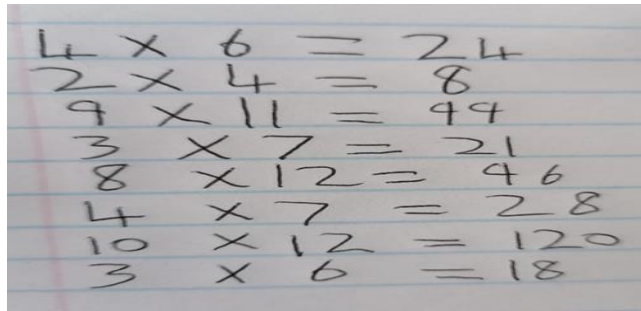 4 × 6 = 24
2 × 4 = 8
9 × 11 = 99
3 × 7 = 21
8 × 12 = 96
4 × 7 = 28
10 × 12 = 120
3 × 6 = 18